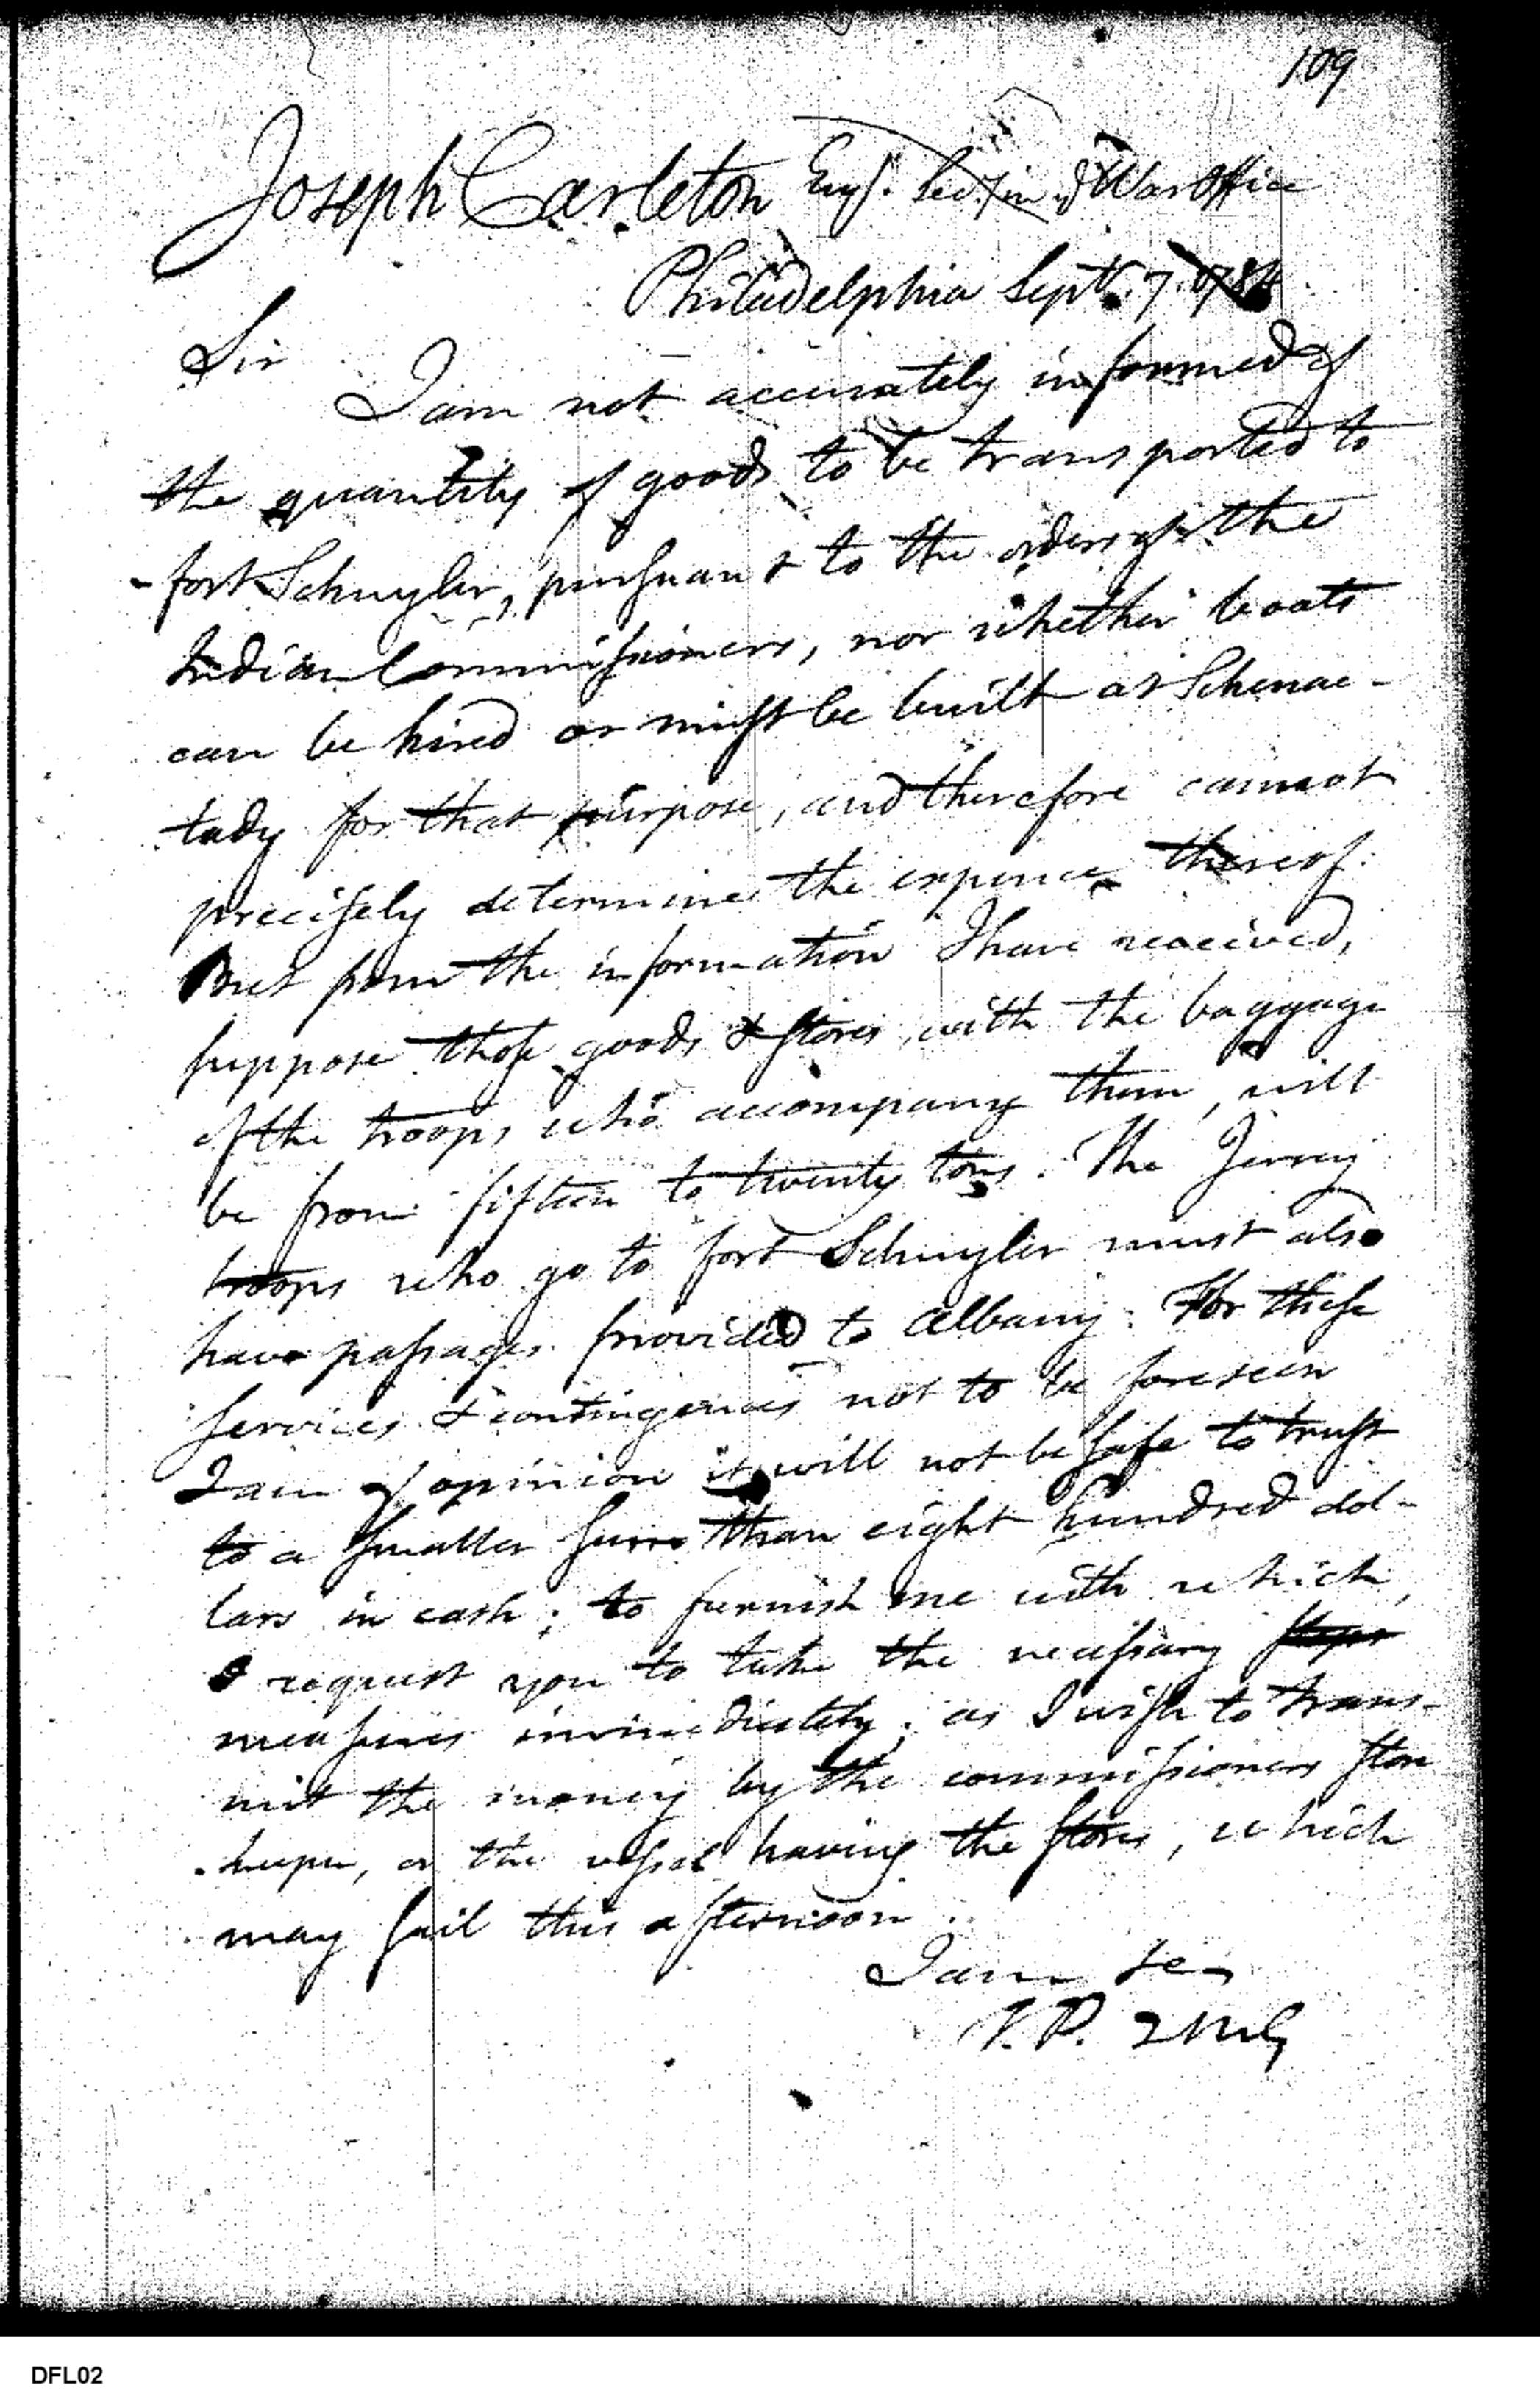 109
Joseph Carleton Esqr. Sec'y in ye War Office
Philadelphia Septr. 7. 1784
Sir
I am not accurately informed of
the quantity of goods to be transported to
fort Schuyler, pursuant to the orders of the
Indian Commissioners, nor whether boats
can be hired or must be built at Schenac-
tady for that purpose, and therefore cannot
precisely determine the expence thereof.
But from the information I have received,
suppose those goods & stores, with the baggage
of the troops who accompany them, will
be from fifteen to twenty tons. The Jersey
troops who go to fort Schuyler must also
have passages provided to Albany. For these
services & contingencies not to be foreseen
I am of opinion it will not be safe to trust
to a smaller sum than eight hundred dol-
lars in cash; to furnish me with which,
I request you to take the necessary steps
measures immediately; as I wish to trans-
mit the money by the commissioners store
keeper, or the vessel having the stores, which
may sail this afternoon.
I am &c
T. P. QMG
DFL02